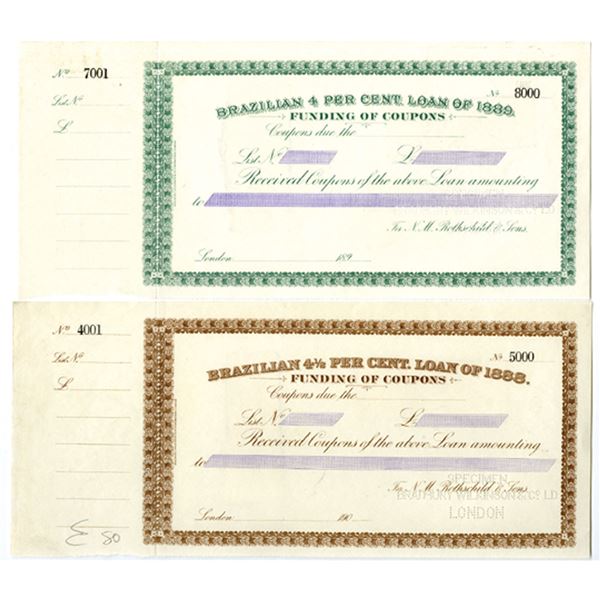 No. 7001
No. 8000
BRAZILIAN 4 PER CENT. LOAN OF 1889.
FUNDING OF COUPONS
List No.
£
Coupons due the
List No. £
Received Coupons of the above Loan amounting
to
WILKINSON & Co LD
For N. M. Rothschild & Sons.
London 189
No. 4001
No. 5000
BRAZILIAN 4½ PER CENT. LOAN OF 1888.
FUNDING OF COUPONS
List No.
£
Coupons due the
List No. £
Received Coupons of the above Loan amounting
to
SPECIMEN
For N. M. Rothschild & Sons.
BRADBURY WILKINSON & Co LD
LONDON
London 190
80